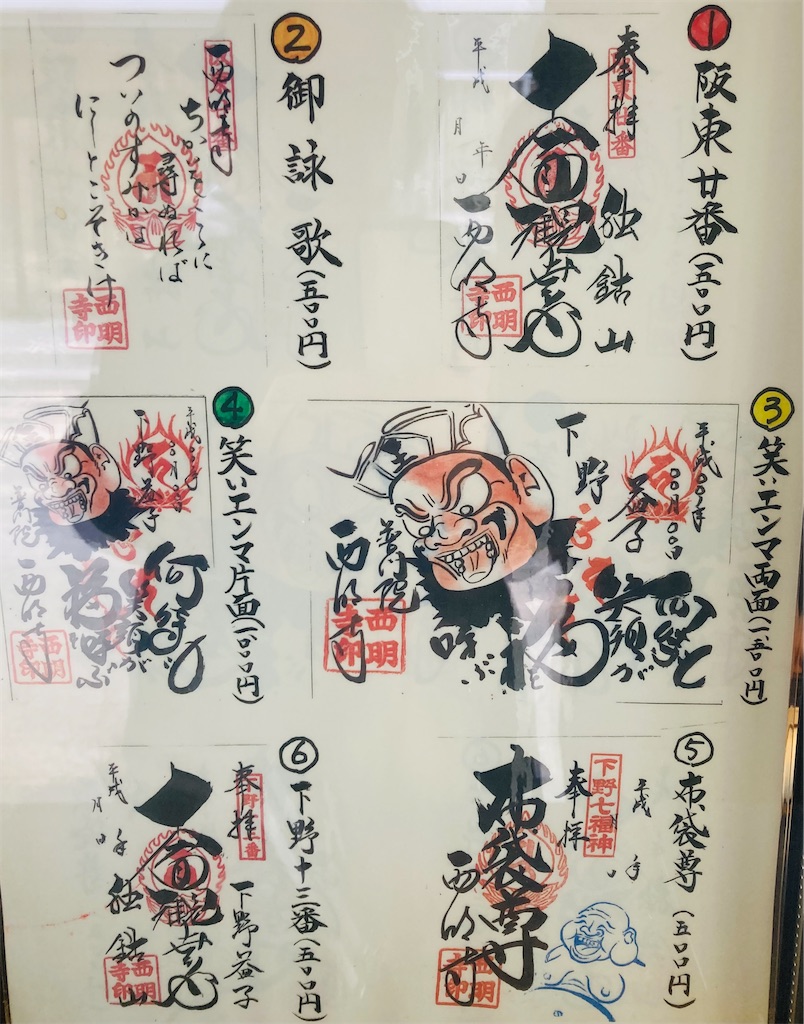 1
阪東廿番(五〇〇円)
奉拝
独鈷山
十一面観世音
西明寺
平成 年 月 日
西明寺印
2
御詠歌(五〇〇円)
西明寺
尋ぬれば
ついのすみかは
西明寺印
3
笑いエンマ両面(一五〇〇円)
平成〇〇年〇〇月〇〇日
下野益子
笑顔が
福を
呼ぶ
普門院
西明寺
西明寺印
4
笑いエンマ片面(一〇〇〇円)
下野益子
何経り
笑顔が
福を呼ぶ
普門院
西明寺
西明寺印
5
布袋尊(五〇〇円)
平成 年
下野七福神
奉拝
布袋尊
西明寺
西明寺印
6
下野十三番(五〇〇円)
奉拝
下野益子
十一面観世音
独鈷山
平成 年 月 日
西明寺印